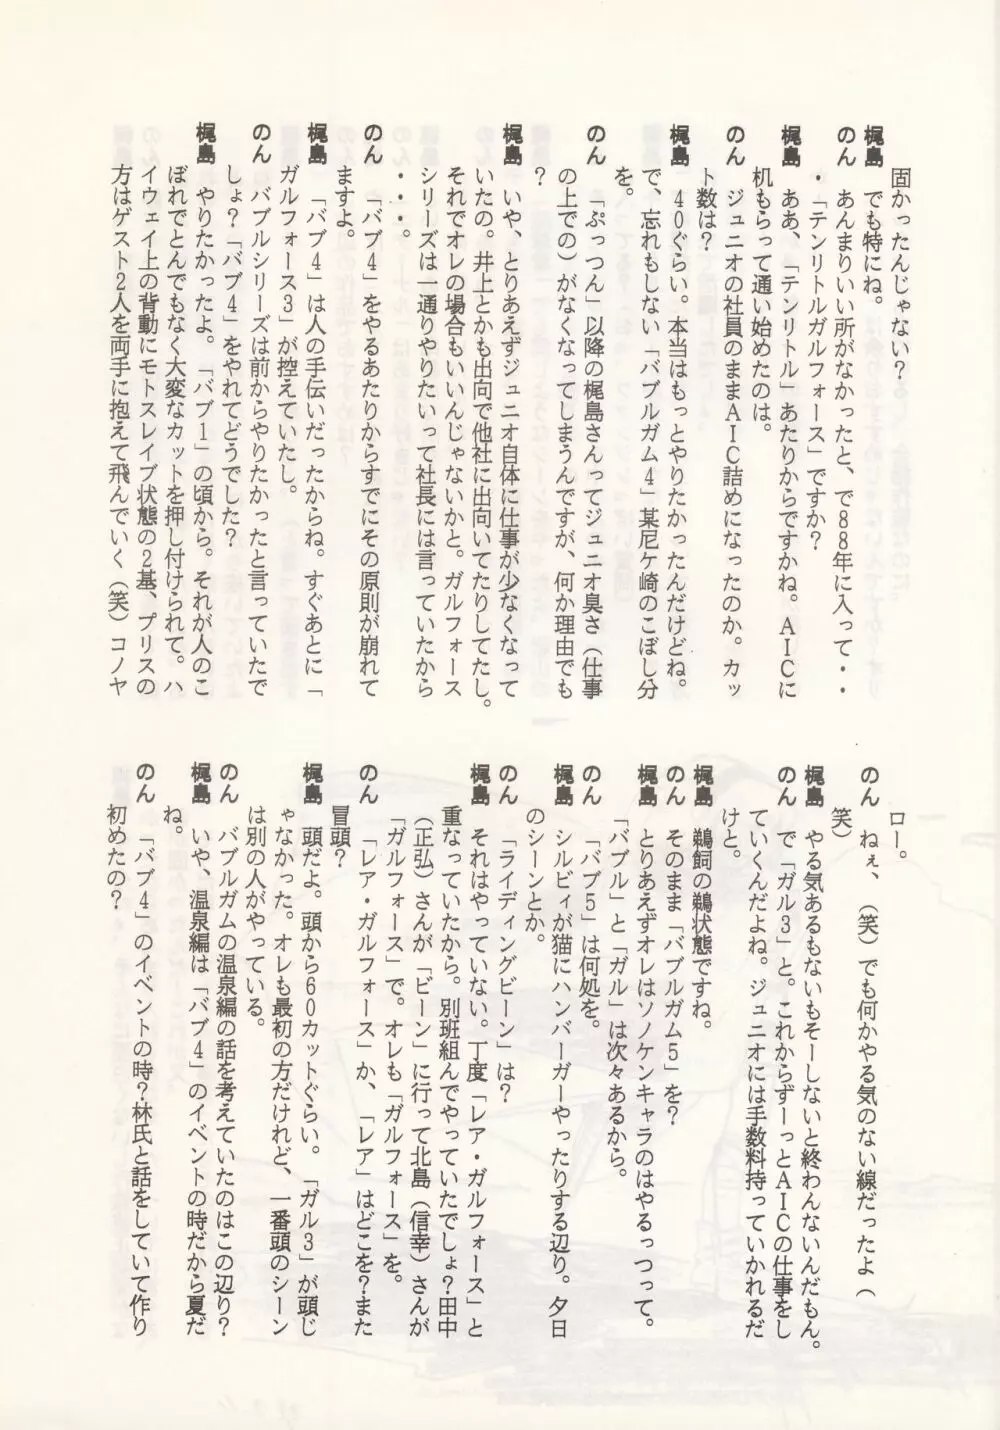 固かったんじゃない?
梶島　でも特にね。
のん　あんまりいい所がなかったと、で88年に入って・・
・「テンリトルガルフォース」ですか?
梶島　ああ、「テンリトル」あたりからですかね。AICに
机もらって通い始めたのは。
のん　ジュニオの社員のままAIC詰めになったのか。カッ
ト数は?
梶島　40ぐらい。本当はもっとやりたかったんだけどね。
で、忘れもしない「バブルガム4」某尼ケ崎のこぼし分
を。
のん　「ぷっつん」以降の梶島さんってジュニオ臭さ(仕事
の上での)がなくなってしまうんですが、何か理由でも
?
梶島　いや、とりあえずジュニオ自体に仕事が少なくなって
いたの。井上とかも出向で他社に出向いてたりしてたし。
それでオレの場合もいいんじゃないかと。ガルフォース
シリーズは一通りやりたいって社長には言っていたから
・・・。
のん　「バブ4」をやるあたりからすでにその原則が崩れて
ますよ。
梶島　「バブ4」は人の手伝いだったからね。すぐあとに「
ガルフォース3」が控えていたし。
のん　バブルシリーズは前からやりたかったと言っていたで
しょ?「バブ4」をやれてどうでした?
梶島　やりたかったよ。「バブ1」の頃から。それが人のこ
ぼれでとんでもなく大変なカットを押し付けられて。ハ
イウェイ上の背動にモトスレイブ状態の2基、プリスの
方はゲスト2人を両手に抱えて飛んでいく(笑)コノヤ
ロー。
のん　ねぇ、(笑)でも何かやる気のない線だったよ(
笑)
梶島　やる気あるもないもそーしないと終わんないんだもん。
のん　で「ガル3」と。これからずーっとAICの仕事をし
ていくんだよね。ジュニオには手数料持っていかれるだ
けと。
梶島　鵜飼の鵜状態ですね。
のん　そのまま「バブルガム5」を?
梶島　とりあえずオレはソノケンキャラのはやるっつって。
「バブル」と「ガル」は次々あるから。
のん　「バブ5」は何処を。
梶島　シルビィが猫にハンバーガーやったりする辺り。夕日
のシーンとか。
のん　「ライディングビーン」は?
梶島　それはやっていない。丁度「レア・ガルフォース」と
重なっていたから。別班組んでやっていたでしょ?田中
(正弘)さんが「ビーン」に行って北島(信幸)さんが
「ガルフォース」で。オレも「ガルフォース」を。
のん　「レア・ガルフォース」か、「レア」はどこを?また
冒頭?
梶島　頭だよ。頭から60カットぐらい。「ガル3」が頭じ
ゃなかった。オレも最初の方だけれど、一番頭のシーン
は別の人がやっている。
のん　バブルガムの温泉編の話を考えていたのはこの辺り?
梶島　いや、温泉編は「バブ4」のイベントの時だから夏だ
ね。
のん　「バブ4」のイベントの時?林氏と話をしていて作り
初めたの?